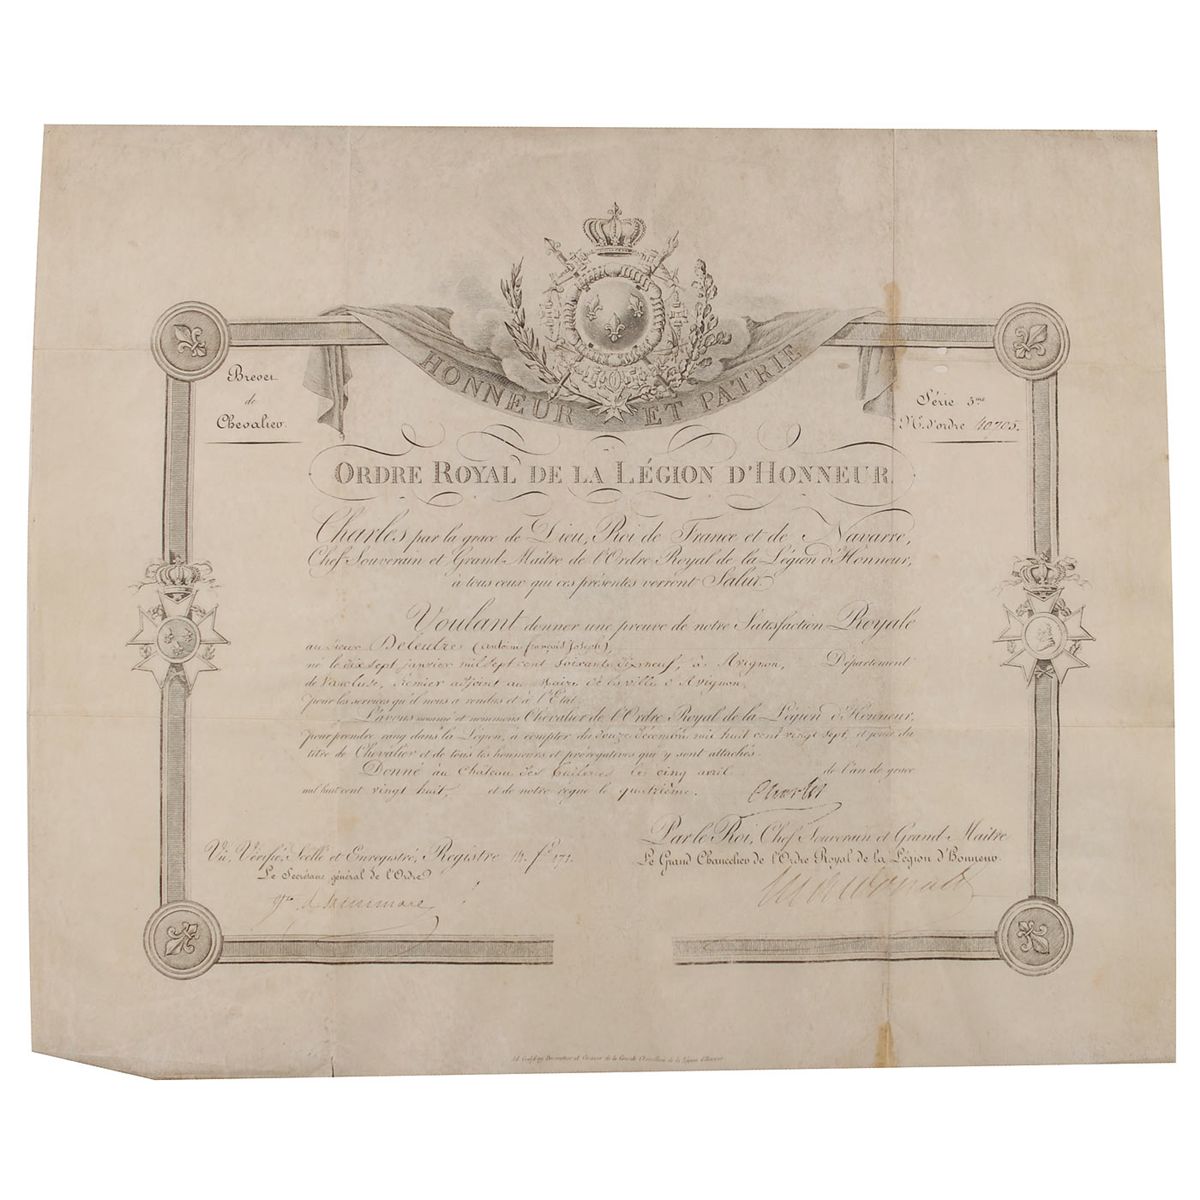 HONNEUR ET PATRIE
Brevet
de
Chevalier.
Série 5me
N.º d'ordre 40705.
ORDRE ROYAL DE LA LÉGION D'HONNEUR.
Charles par la grace de Dieu, Roi de France et de Navarre,
Chef Souverain et Grand-Maître de l'Ordre Royal de la Légion d'Honneur,
à tous ceux qui ces présentes verront Salut.
Voulant donner une preuve de notre Satisfaction Royale
au Sieur Deleutre (Antoine françois Joseph),
né le dix sept janvier mil sept cent soixante dix neuf, à Avignon, Département
de Vaucluse, Premier adjoint au Maire de la ville d'Avignon,
pour les services qu'il nous a rendus et à l'Etat
L'avons nommé et nommons Chevalier de l'Ordre Royal de la Légion d'Honneur,
pour prendre rang dans la Légion, à compter du douze décembre mil huit cent vingt sept, et jouir du
titre de Chevalier et de tous les honneurs et prérogatives qui y sont attachés.
Donné au Château des Tuileries le cinq avril de l'an de grace
mil huit cent vingt huit, et de notre règne le quatrième. Charles
Par le Roi, Chef Souverain et Grand-Maître
Vu, Vérifié, Scellé et Enregistré, Registre 14. fo. 171.
Le Grand Chancelier de l'Ordre Royal de la Légion d'Honneur.
Le Secrétaire général de l'Ordre
Macdonald